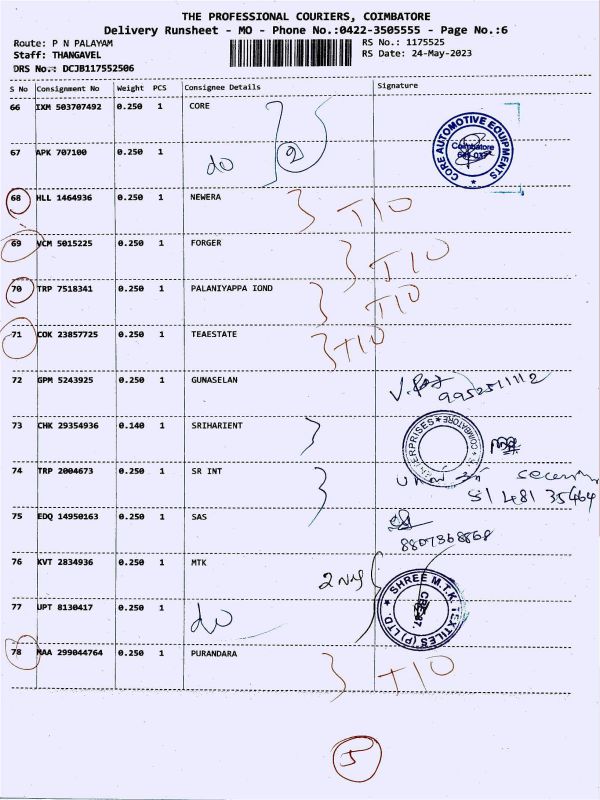 THE PROFESSIONAL COURIERS, COIMBATORE
Delivery Runsheet - MO - Phone No.:0422-3505555 - Page No.:6
Route: P N PALAYAM RS No.: 1175525
Staff: THANGAVEL RS Date: 24-May-2023
DRS No.: DCJB117552506
S No Consignment No Weight PCS Consignee Details Signature
66 IXM 503707492 0.250 1 CORE
CORE AUTOMOTIVE EQUIPMENTS
Coimbatore
67 APK 707100 0.250 1 do 2
68 HLL 1464936 0.250 1 NEWERA T10
69 VCM 5015225 0.250 1 FORGER T10
70 TRP 7518341 0.250 1 PALANIYAPPA IOND T10
71 COK 23857725 0.250 1 TEAESTATE T10
72 GPM 5243925 0.250 1 GUNASELAN
9952511112
73 CHK 29354936 0.140 1 SRIHARIENT
COIMBATORE
74 TRP 2004673 0.250 1 SR INT
81481 35464
75 EDQ 14950163 0.250 1 SAS
8807368868
76 KVT 2834936 0.250 1 MTK
SHREE M.T.K. TEXTILES (P) LTD
77 UPT 8130417 0.250 1 do
78 MAA 299044764 0.250 1 PURANDARA T10
5